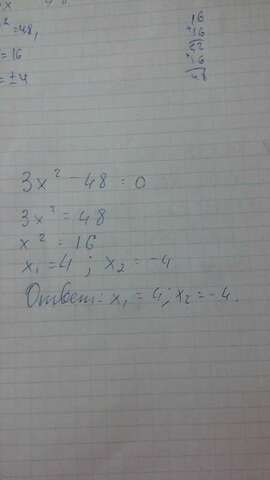 ² = 48,
= 16
= ±4
16
+16
22
+16
48
3x² - 48 = 0
3x² = 48
x² = 16
x₁ = 4 ; x₂ = -4
Ответ: x₁ = 4; x₂ = -4.